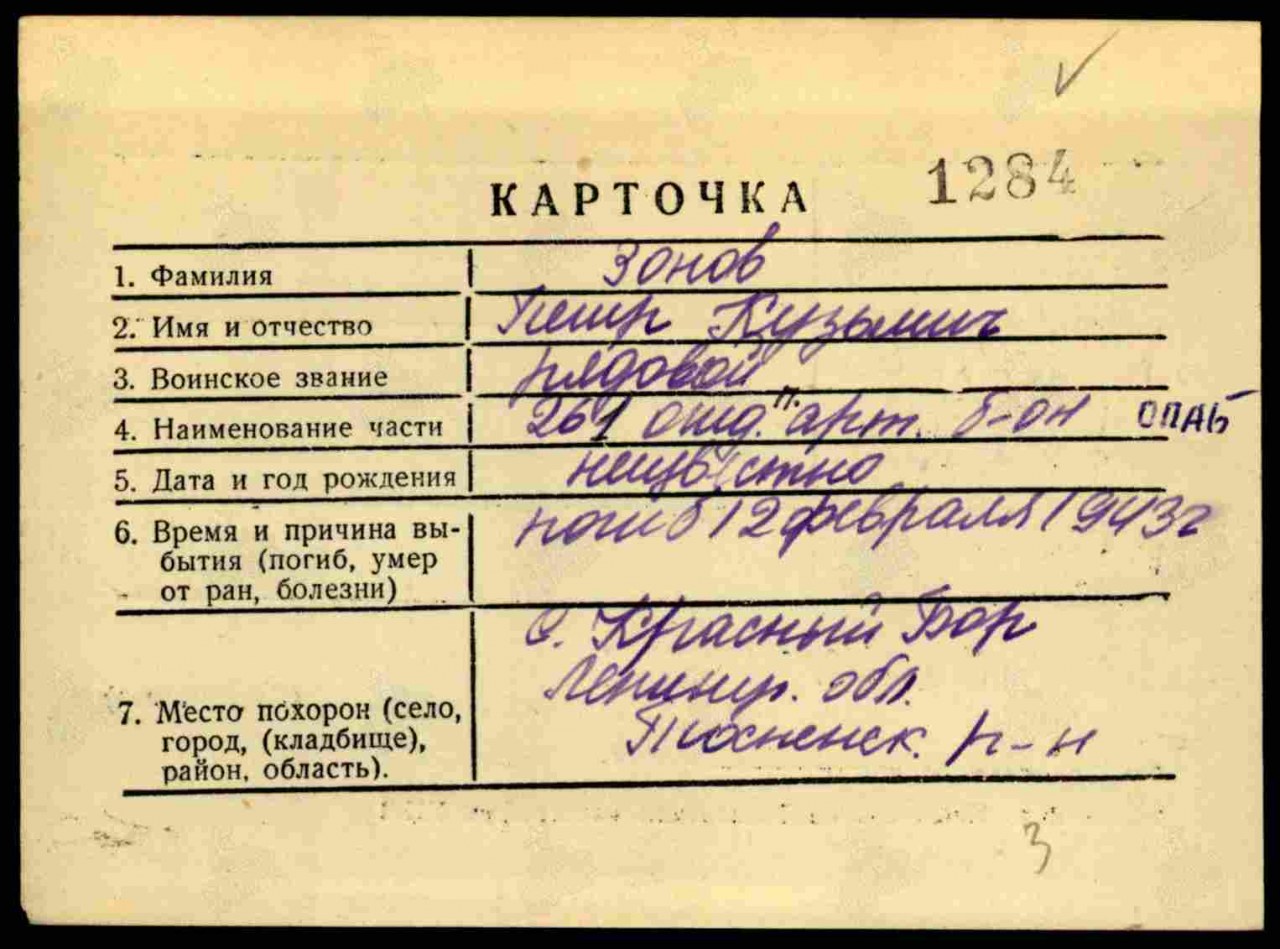 1284
КАРТОЧКА
1. Фамилия Зонов
2. Имя и отчество Петр Кузьмич
3. Воинское звание рядовой
4. Наименование части 261 отд. п. арт. б-он ОПАБ
5. Дата и год рождения неизвестно
6. Время и причина вы- погиб 12 февраля 1943г
бытия (погиб, умер
от ран, болезни)
с. Красный Бор
Ленингр. обл.
7. Место похорон (село, Тосненск. р-н
город, (кладбище),
район, область).
3